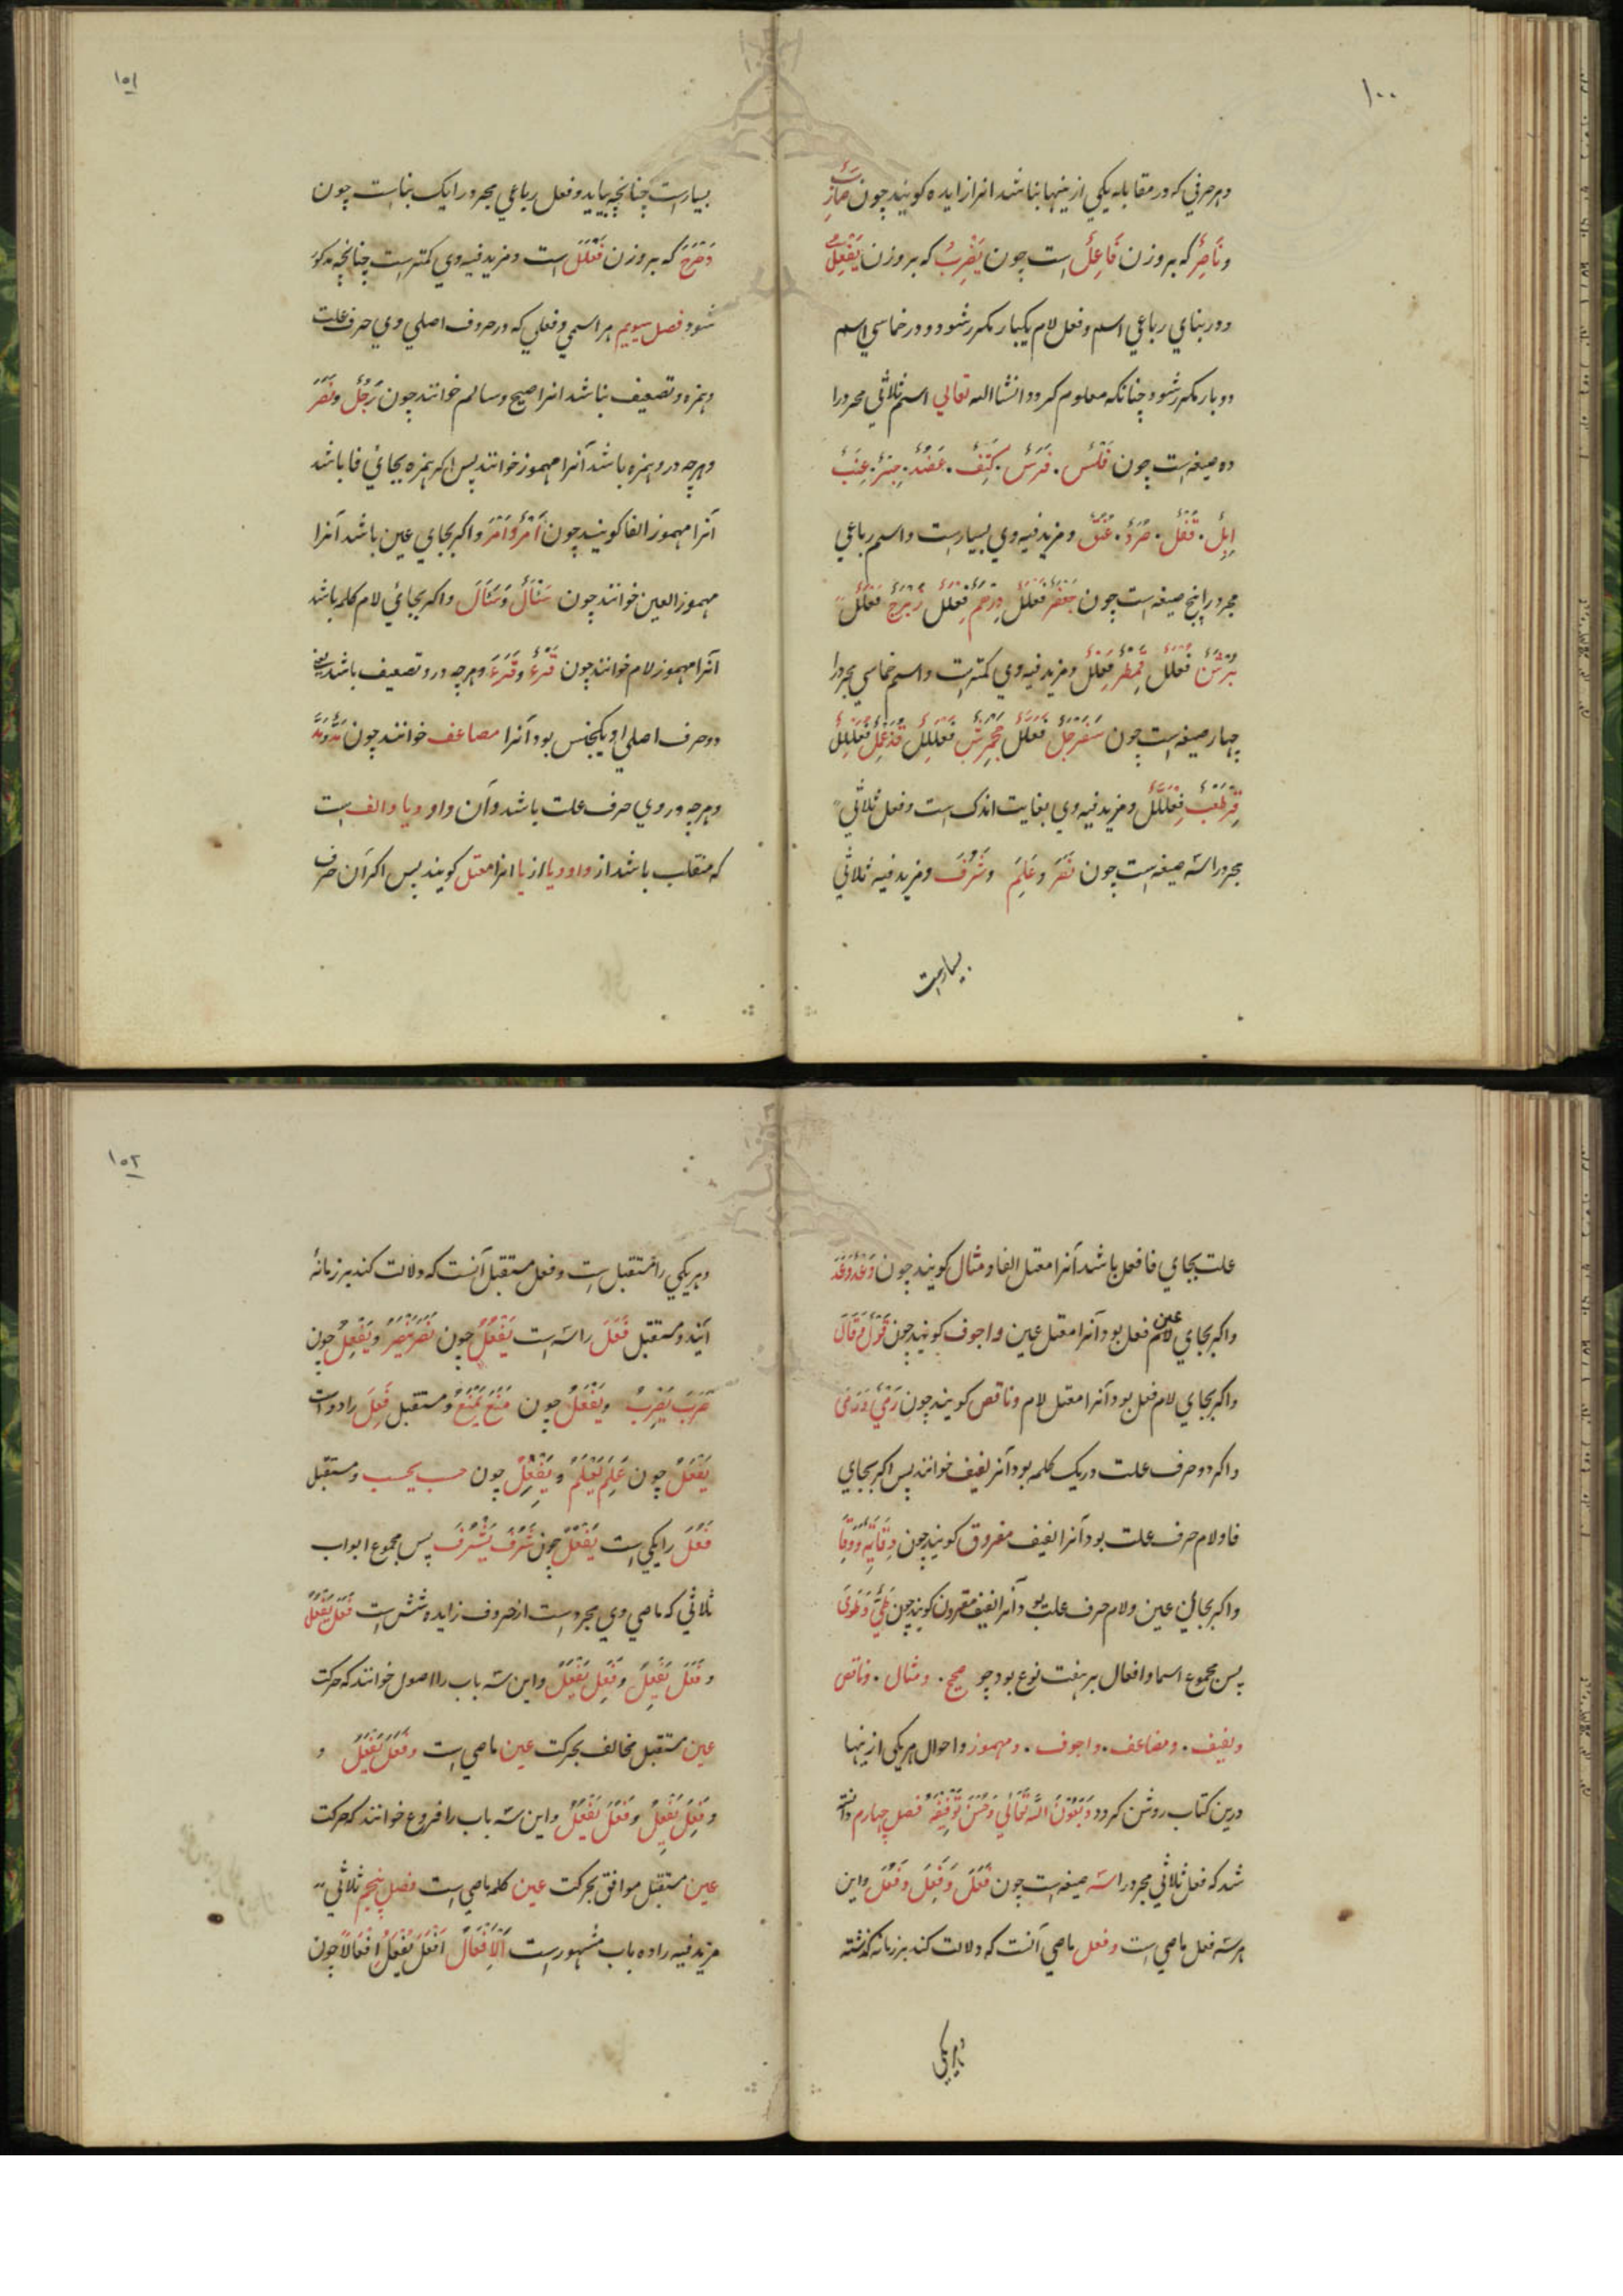 ١٠٠
وهر حرفي كه در مقابله يكي از ينها نباشد انرا زايده كويند چون ضَارِبٌ
ونَاصِرٌ كه بر وزن فَاعِلٌ است چون يَضْرِبُ كه بر وزن يَفْعِلُ
ودر بناي رباعي اسم وفعل لام يكبار مكرر شود ودر خماسي اسم
دوبار مكرر شود چنانكه معلوم كردد انشا الله تعالي اسم ثلاثي مجرد را
ده صيغه است چون فَلْسٌ . فَرَسٌ . كَتِفٌ . عَضُدٌ . حِبْرٌ . عِنَبٌ
اِبِلٌ . قُفْلٌ . صُرَدٌ . عُنُقٌ ومزيد فيه وي بسيارست واسم رباعي
مجرد را پنج صيغه است چون جَعْفَرٌ فَعْلَلٌ دِرْهَمٌ فِعْلَلٌ زِبْرِجٌ فِعْلِلٌ
بُرْثُنٌ فُعْلُلٌ قِمَطْرٌ فِعَلْلٌ ومزيد فيه وي كمترست واسم خماسي مجرد را
چهار صيغه است چون سَفَرْجَلٌ فَعَلَّلٌ جَحْمَرِشٌ فَعْلَلِلٌ قُذَعْمِلٌ فُعَلِّلٌ
قِرْطَعْبٌ فِعْلَلٌّ ومزيد فيه وي بغايت اندك است وفعل ثلاثي
مجرد را سه صيغه است چون نَصَرَ وعَلِمَ وشَرُفَ ومزيد فيه ثلاثي
بسيارست
١٥١
بسيارست چنانچه بيايد وفعل رباعي مجرد را يك بناست چون
دَحْرَجَ كه بر وزن فَعْلَلَ است ومزيد فيه وي كمترست چنانچه مذكور
شود فصل سيوم هر اسمي وفعلي كه در حروف اصلي وي حرف علت
وهمزه وتضعيف نباشد انرا صحيح وسالم خوانند چون رَجُلٌ ونَصَرَ
وهرچه درو همزه باشد آنرا مهموز خوانند پس اكر همزه بجائي فا باشد
آنرا مهموز الفا كويند چون اَمْرٌ واَمَرَ واكر بجاي عين باشد آنرا
مهموز العين خوانند چون سَئْاَلٌ وسَئَاَلَ واكر بجائي لام كلمه باشد
آنرا مهموز لام خوانند چون قَرْءٌ وقَرَءَ وهرچه درو تضعيف باشد يعني
دو حرف اصلي او يكجنس بود آنرا مضاعف خوانند چون مَدٌّ ومَدَّ
وهرچه در وي حرف علت باشد وآن واو ويا والف است
كه منقلب باشد از واو ويا از يا انرا معتل كويند پس اكر آن حرف
علت بجاي فا فعل باشد آنرا معتل الفا ومثال كويند چون وَعْدٌ وَعَدَ
عين
واكر بجاي لام فعل بود آنرا معتل عين واجوف كويند چون قَوْلٌ وقَالَ
واكر بجاي لام فعل بود آنرا معتل لام وناقص كويند چون رَمْيٌ ورَمَى
واكر دو حرف علت در يك كلمه بود آنر لفيف خوانند پس اكر بجاي
فا ولام حرف علت بود آنرا لفيف مفروق كويند چون وِقَايَةٌ ووَقَا
واكر بجائي عين ولام حرف علت بود آنرا لفيف مقرون كويند چون طَيٌّ وطَوَى
پس مجموع اسما وافعال بر هفت نوع بود چو صحيح . ومثال . وناقص
ولفيف . ومضاعف . واجوف . ومهموز واحوال هر يكي از ينها
درين كتاب روشن كردد بِعَوْنِ اللهِ تَعَالَى وَحُسْنِ تَوْفِيْقِهِ فصل چهارم دانسته
شد كه فعل ثلاثي مجرد را سه صيغه است چون فَعَلَ وَفَعِلَ وَفَعُلَ واين
هر سه فعل ماضي است وفعل ماضي آنست كه دلالت كند بر زمانه كذشته
وهر يكي
١٥٢
وهر يكي را مستقبل است وفعل مستقبل آنست كه دلالت كند بر زمانهٔ
آينده ومستقبل فَعَلَ را سه است يَفْعُلُ چون نَصَرَ يَنْصُرُ ويَفْعِلُ چون
ضَرَبَ يَضْرِبُ ويَفْعَلُ چون مَنَعَ يَمْنَعُ ومستقبل فَعِلَ را دو است
يَفْعَلُ چون عَلِمَ يَعْلَمُ ويَفْعِلُ چون حسب يحسب ومستقبل
فَعُلَ را يكي است يَفْعُلُ چون شَرُفَ يَشْرُفُ پس مجموع ابواب
ثلاثي كه ماضي وي مجردست از حروف زايده شش است فَعَلَ يَفْعُلُ
وفَعَلَ يَفْعِلُ وفَعِلَ يَفْعَلُ واين سه باب را اصول خوانند كه حركت
عين مستقبل مخالف بحركت عين ماضي است وفَعَلَ يَفْعَلُ و
وفَعِلَ يَفْعِلُ وفَعُلَ يَفْعُلُ واين سه باب را فروع خوانند كه حركت
عين مستقبل موافق بحركت عين كلمه ماضي است فصل پنجم ثلاثي
مزيد فيه را ده باب مشهورست اَلْاِفْعَالُ اَفْعَلَ يُفْعِلُ اِفْعَالًا چون